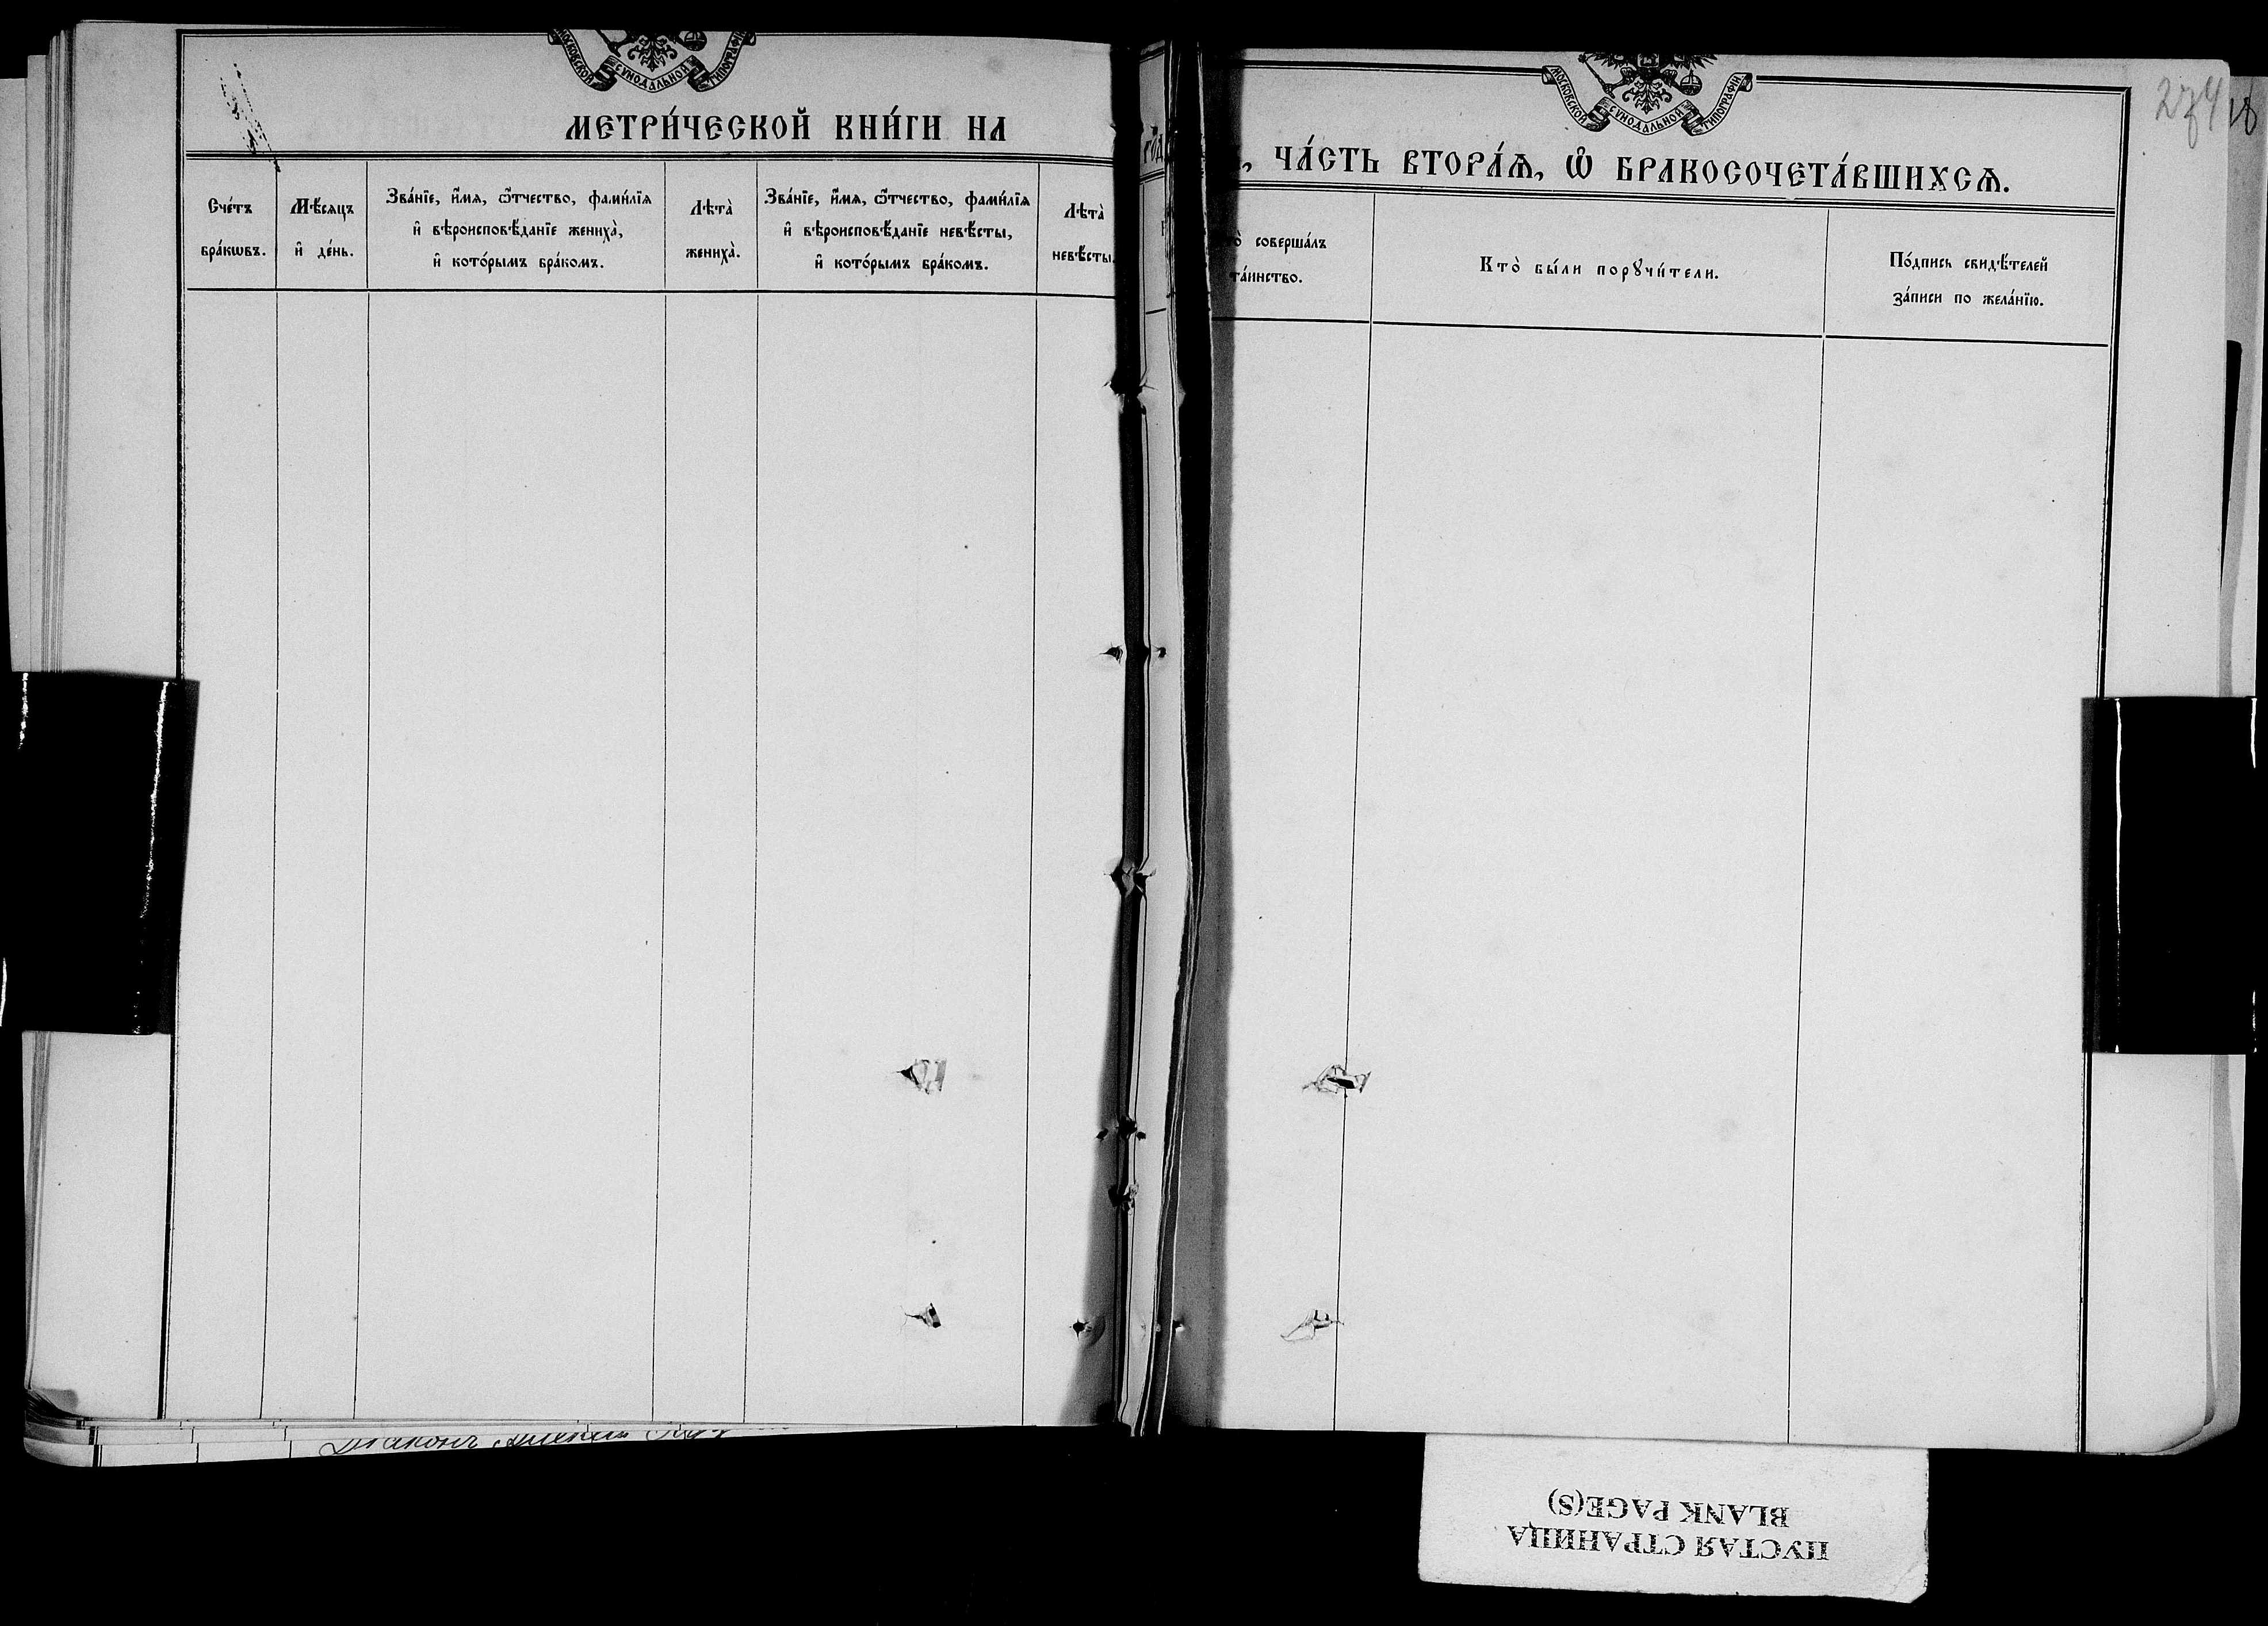 МОСКОВСКОЙ СѴНОДАЛЬНОЙ ТИПОГРАФІИ
МЕТРИ́ЧЕСКОЙ КНИ́ГИ НА
Сче́тъ
бра́кѡвъ.
Мѣ́сяцъ
и҆ де́нь.
Зва́нїе, и҆́мѧ, ѻ҆́тчество, фами́лїѧ
и҆ вѣроисповѣ́данїе жениха̀,
и҆ кото́рымъ бра́комъ.
Лѣта̀
жениха̀.
Зва́нїе, и҆́мѧ, ѻ҆́тчество, фами́лїѧ
и҆ вѣроисповѣ́данїе невѣ́сты,
и҆ кото́рымъ бра́комъ.
Лѣта̀
невѣ́сты.
Дїаконъ
МОСКОВСКОЙ СѴНОДАЛЬНОЙ ТИПОГРАФІИ
, ЧА́СТЬ ВТОРА́Ѧ, Ѽ БРАКОСОЧЕТА́ВШИХСѦ.
совершалъ
та́инство.
Кто̀ бы́ли порꙋчи́тели.
По́дпись свидѣ́телей
за́писи по жела́нїю.
274
18
ПУСТАЯ СТРАНИЦА
BLANK PAGE(S)